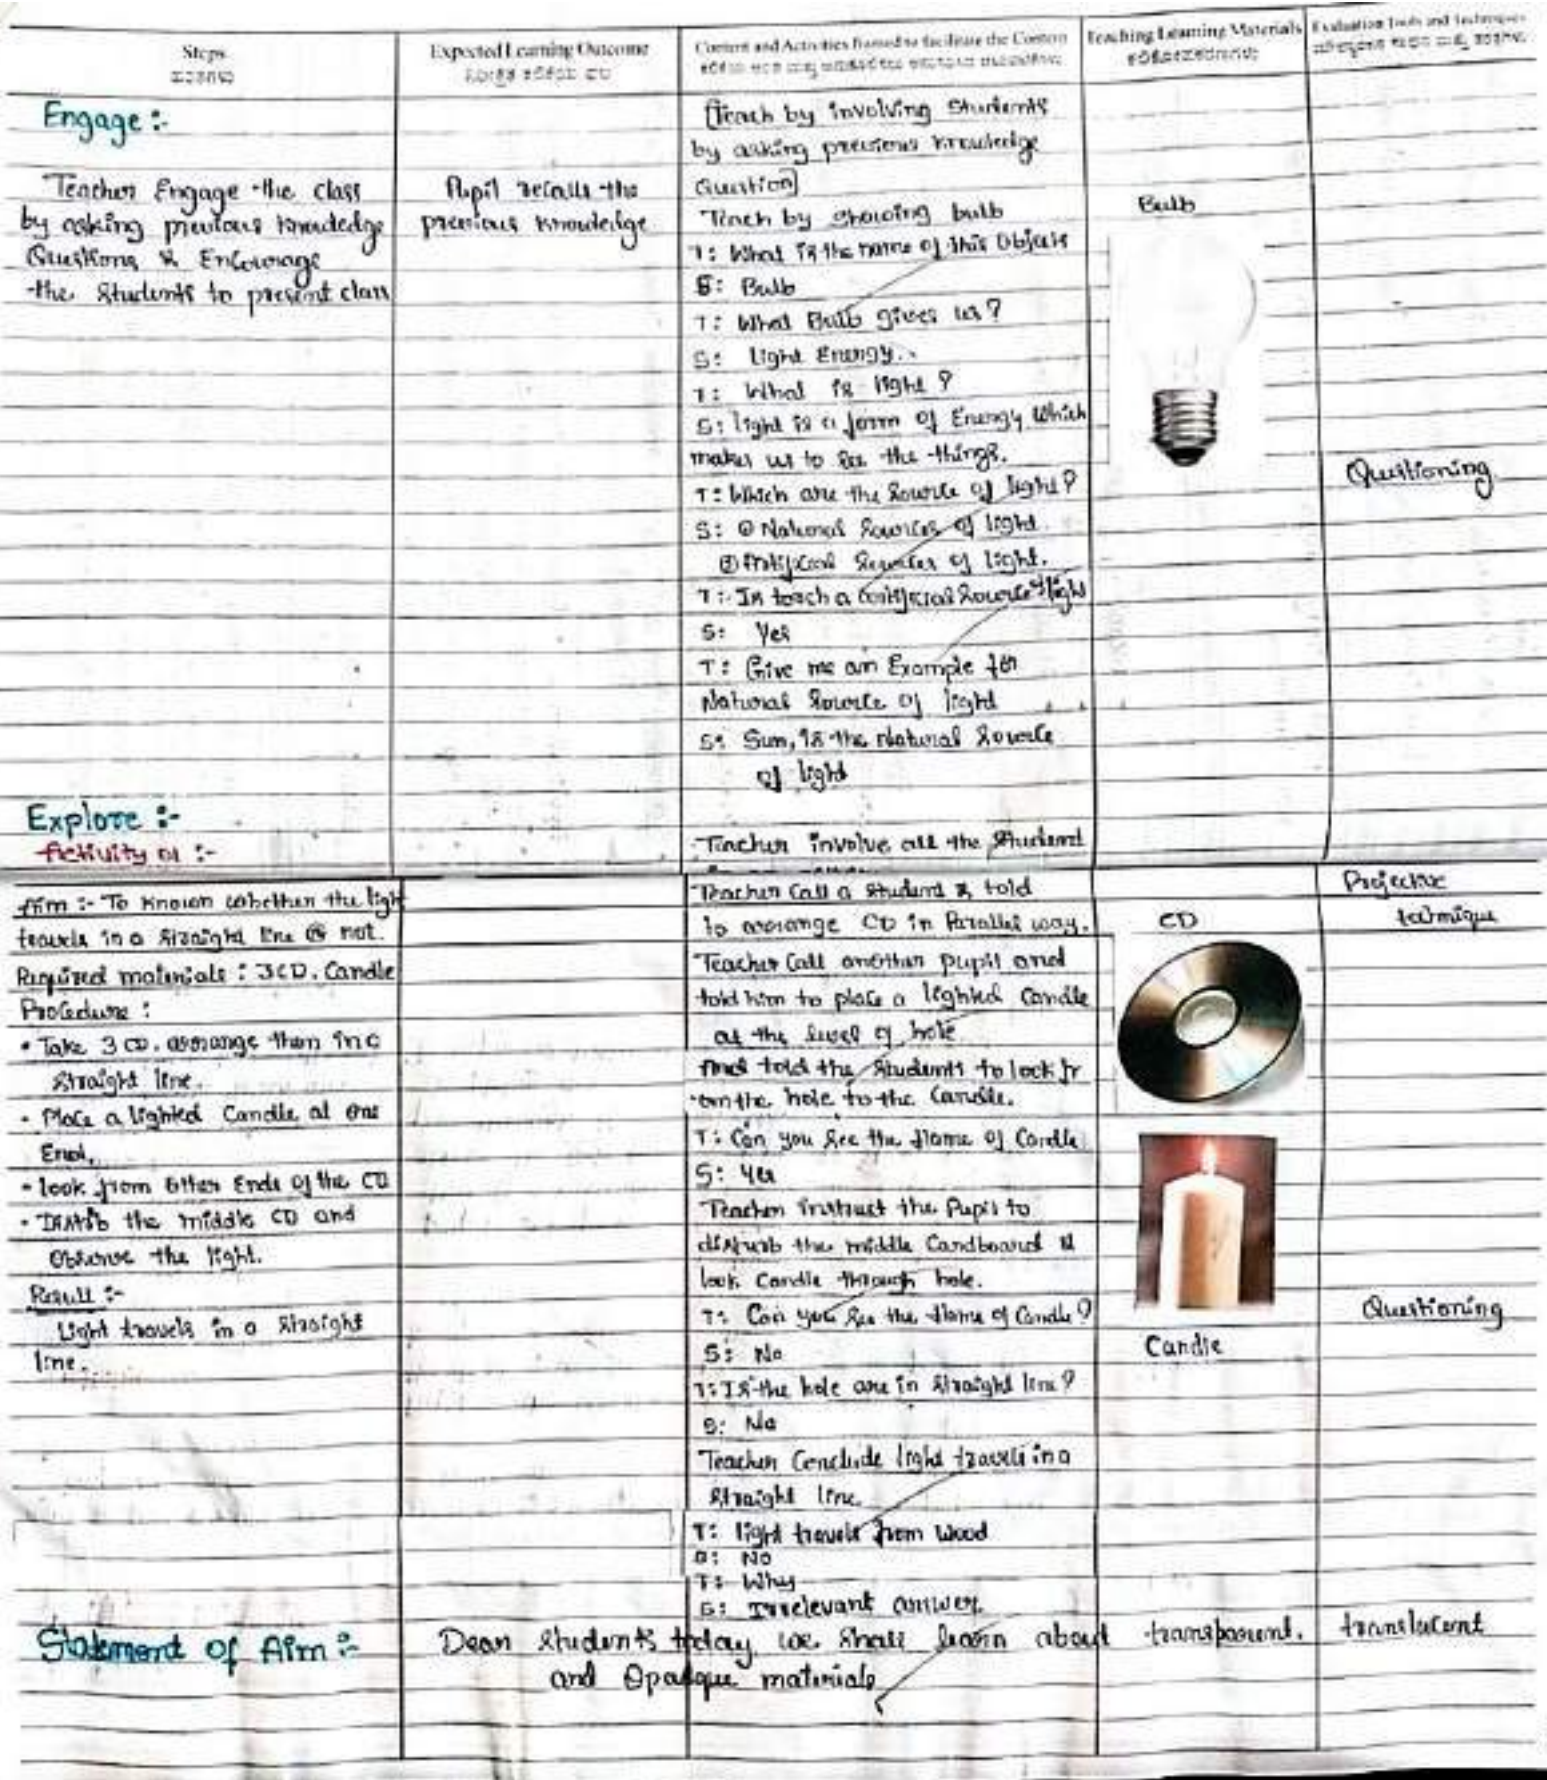 Steps
Expected Learning Outcome
Content and Activities framed to facilitate the Content
Teaching Learning Materials
Evaluation Tools and Techniques
Engage :-
Teacher Engage the class
by asking previous knowledge
Questions & Encourage
the Students to present class
Pupil recalls the
previous knowledge
[Teach by involving Students
by asking previous knowledge
Question]
Teach by showing bulb
T: What is the name of this Object
S: Bulb
T: What Bulb gives us?
S: Light Energy.
T: What is light?
S: light is a form of Energy Which
makes us to see the things.
T: Which are the Source of light?
S: ① Natural Sources of light
② Artificial Sources of light.
T: Is torch a artificial Source of light
S: Yes
T: Give me an Example for
Natural Source of light
S: Sun, is the Natural Source
of light
Bulb
Questioning
Explore :-
Activity 01 :-
Teacher involve all the Student
Aim :- To Known whether the light
travels in a straight line or not.
Required materials : 3CD, Candle
Procedure :
• Take 3 CD. arrange them in a
Straight line.
• Place a lighted Candle at one
End.
• look from other Ends of the CD
• Distrib the middle CD and
Observe the light.
Result :-
Light travels in a Straight
line.
Teacher Call a Student & told
to arrange CD in Parallel way.
Teacher Call another pupil and
told him to place a lighted Candle
at the level of hole
And told the Students to look fr
om the hole to the Candle.
T: Can you See the flame of Candle
S: Yes
Teacher instruct the Pupil to
disturb the middle Cardboard &
look Candle through hole.
T: Can you See the flame of Candle?
S: No
T: Is the hole are in Straight line?
S: No
Teacher Conclude light travels in a
Straight line
T: light travels from Wood
S: No
T: Why
S: Irrelevant answer.
CD
Candle
Projective
technique
Questioning
Statement of Aim :-
Dear Students today we shall learn about transparent. translucent
and Opaque materials